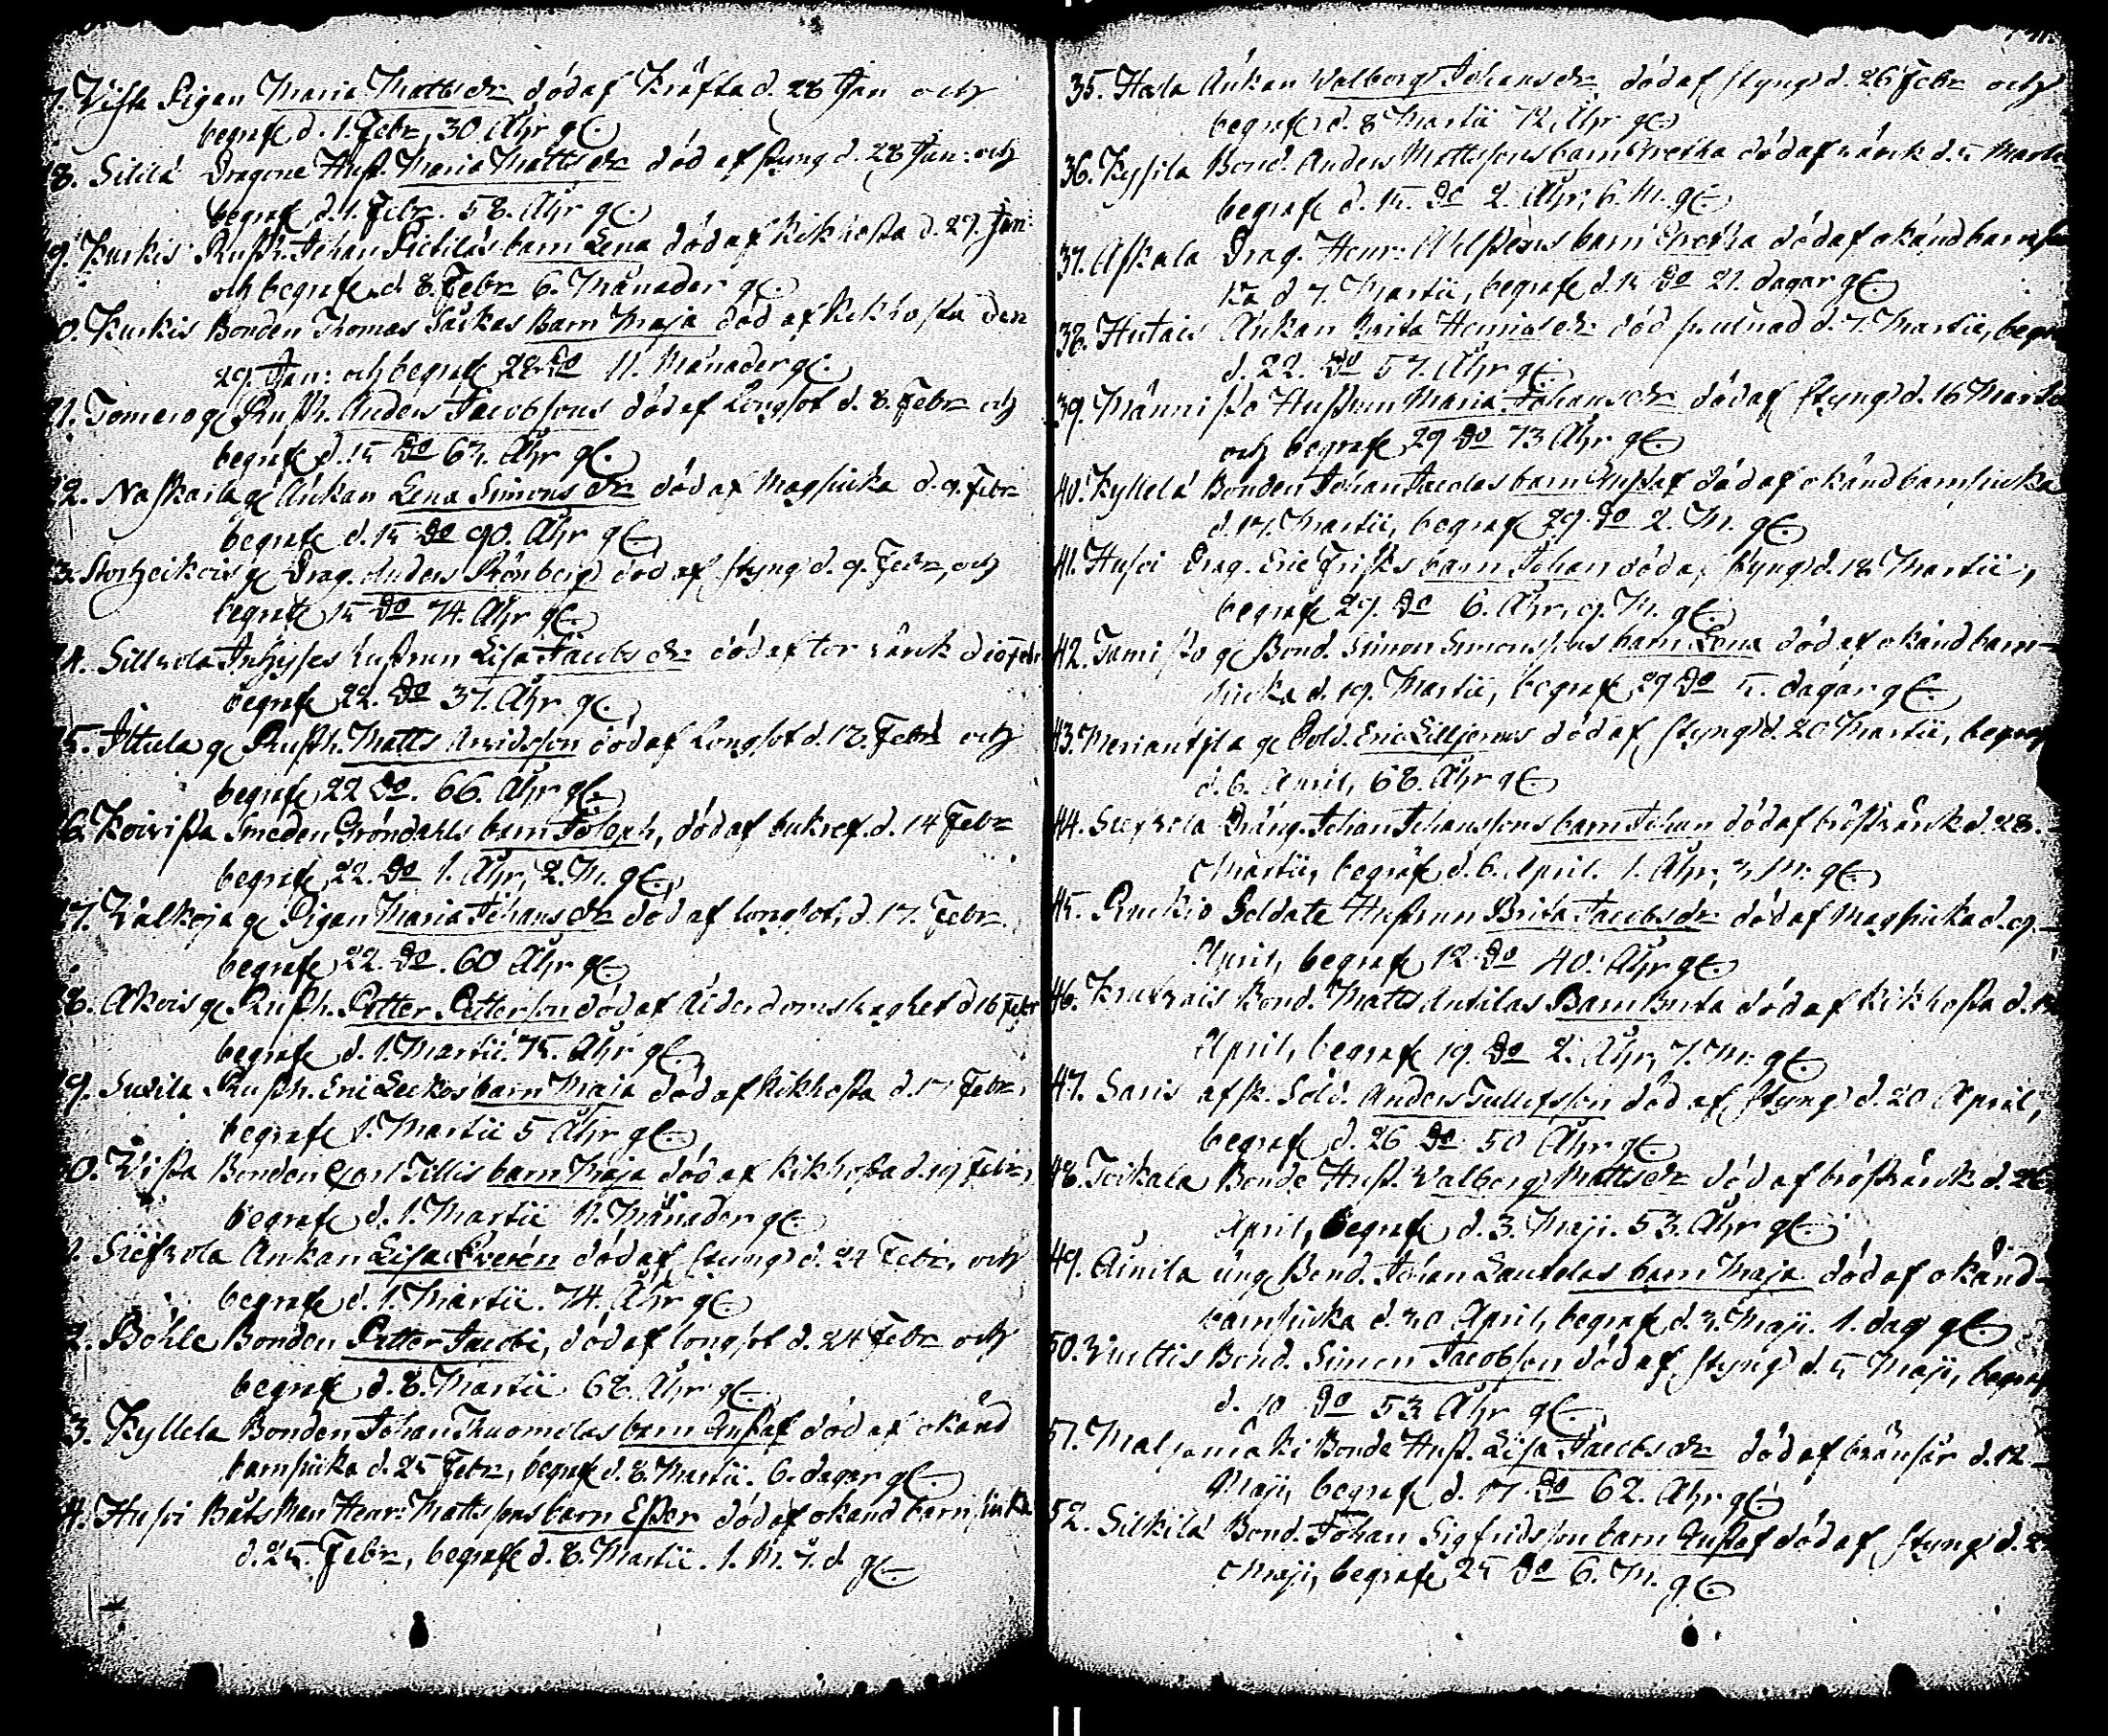 7. Wista Pigan Maria Mattsdr död af Kräfta d. 28 Jan och
begrafn d. 1. Febr, 30 Åhr gl.
8. Silila Dragone Hust. Maria Mattsdr död af styng d. 28 Jan: och
begrafn d. 1. Febr. 58. Åhr gl.
9. Kurkis Rusth. Johan Pietiläs barn Lena död af kikhosta d. 27. Jan:
och begrafn d. 8. Febr 6. Månader gl.
0. Kurkis Bonden Thomas barn Maja död af kikhosta den
29. Jan: och begrafn 28 do 11. Månader gl.
21. Tomerog Rusth. Anders Jacobssons död af Longsot d. 8. Febr och
begrafn d. 15 do 63. Åhr gl.
22. Naskaila gl Änkan Lena Simonsdr död af Magsiuka d. 9. Febr
begrafn d. 15 do 90. Åhr gl.
3. Storheikois gl Drag. Anders Rönberg död af styng d. 9. Febr, och
begrafn 15 do 74. Åhr gl.
4. Sillvola Inhyses hustrun Lisa Jacobsdr död af tor värck d 10 Febr
begrafn 22. do 37. Åhr gl.
5. Ittula gl Rusth. Matts Arvidsson död af Longsot d. 12. Febr och
begrafn 22 do. 66. Åhr gl.
6. Koivista Smeden Gröndahls barn Joseph, död af bukref. d. 14 Febr
begrafn 22. do 1. Åhr, 2. M. gl.
7. Walkoja gl Pigan Maria Johansdr död af longsot, d. 17. Febr.
begrafn 22. do. 60 Åhr gl.
8. Akois gl. Rusth. Petter Petterson död af Ålderdomsswaghet d 16 Febr
begrafn d. 1. Martii. 75. Åhr gl.
9. Suxila Rusth. Eric Leckos barn Maja död af kikhosta d. 17 Febr,
begrafn 1. Martii 5 Åhr gl.
0. Wista Bonden Carl Tillis barn Maja död af kikhosta d. 19 Febr,
begrafn d. 1. Martii 11. Månader gl.
1. Siefvola Änkan Lisa död af styng d. 24 Febr, och
begrafn d. 1. Martii. 74. Åhr gl.
2. Böhle Bonden Petter Jacobi, död af longsot d. 24 Febr och
begrafn d. 8. Martii 68. Åhr gl.
3. Kyllela Bonden Johan Thuomolas barn Gustaf död af okänd
barnsiuka d. 25 Febr, begrafn d. 8. Martii. 6. dagar gl.
4. Husoi Båtsman Henr: Mattssons barn Ester död af okänd barnsiuka
d. 25. Febr, begrafn d. 8. Martii. 1. M. 7. d. gl.
35. Hala Änkan Walborg Johansdr död af styng d. 26 Febr och
begrafn d. 8 Martii 72, Åhr gl.
36. Kysila Bond. Anders Mattssons barn Gretha död af värck d. 5 Marti
begrafn d. 15. do 2. Åhr, 6. M. gl.
37. Askala Drag. Henr: barn Gretha död af okänd barnsiu
ka d 7. Martii, begrafn d. 15 do 21. dagar gl.
38. Hutais Änkan Brita Henricsdr död d. 7. Martii, begra
d. 22. do 57. Åhr gl.
39. Männisto Hustrun Maria Johansdr död af styng d. 16 Martii
och begrafn 29 do 73 Åhr gl.
40. Kyllelä Bonden Johan Jacolas barn Gustaf död af okänd barnsiuka
d. 17. Martii, begrafn 29. do 2. M. gl.
41. Husoi Drag. Eric Frisks barn Johan död af styng d. 18 Martii,
begrafn 29. do 6. Åhr, 9. M. gl.
42. Tamisto gl Bond. Simon Simonssons barn Lena död af okänd barn-
siuka d. 19. Martii, begrafn 29 do 5. dagar gl.
43. Meriantila gl Sold. Eric Lilljerous död af styng d. 20 Martii, begraf
d. 6. April, 68. Åhr gl.
44. Siefvola Dräng. Johan Johanssons barn Johan död af bröstvärck d. 28.
Martii, begrafn d. 6. April. 1. Åhr, 3. M. gl.
45. Ruckio Soldate Hustrun Brita Jacobsdr död af Magsiuka d. 9.
April, begrafn 12. do 40. Åhr gl.
46. Bond. Matts Antilas Barn Brita död af kikhosta d.
April, begrafn 19. do 2. Åhr, 7. M. gl.
47. Saris afsk. Sold. Anders Tullifsson död af styng d. 20 April,
begrafn d. 26 do 50 Åhr gl.
48. Toikala Bonde Hust. Walborg Mattsdr död af bröstvärck d. 26
April, Begrafn d. 3. Maji. 53. Åhr gl.
49. Äinila ung Bond. Johan Lautelas barn Maja död af okänd-
barnsiuka d. 30 April, begrafn d. 3. Maji. 1. dag gl.
50. Viettis Bond. Simon Jacobsson död af styng d. 5 Maji, begraf
d. 10 do 53 Åhr gl.
51. Maljamäki Bonde Hust. Lisa Jacobsdr död af d. 12
Maji, begrafn d. 17 do 62. Åhr gl.
52. Silkilä Bond. Johan Sigfridsson barn Gustaf död af styng d. 2
Maji, begrafn 25 do 6. M. gl.